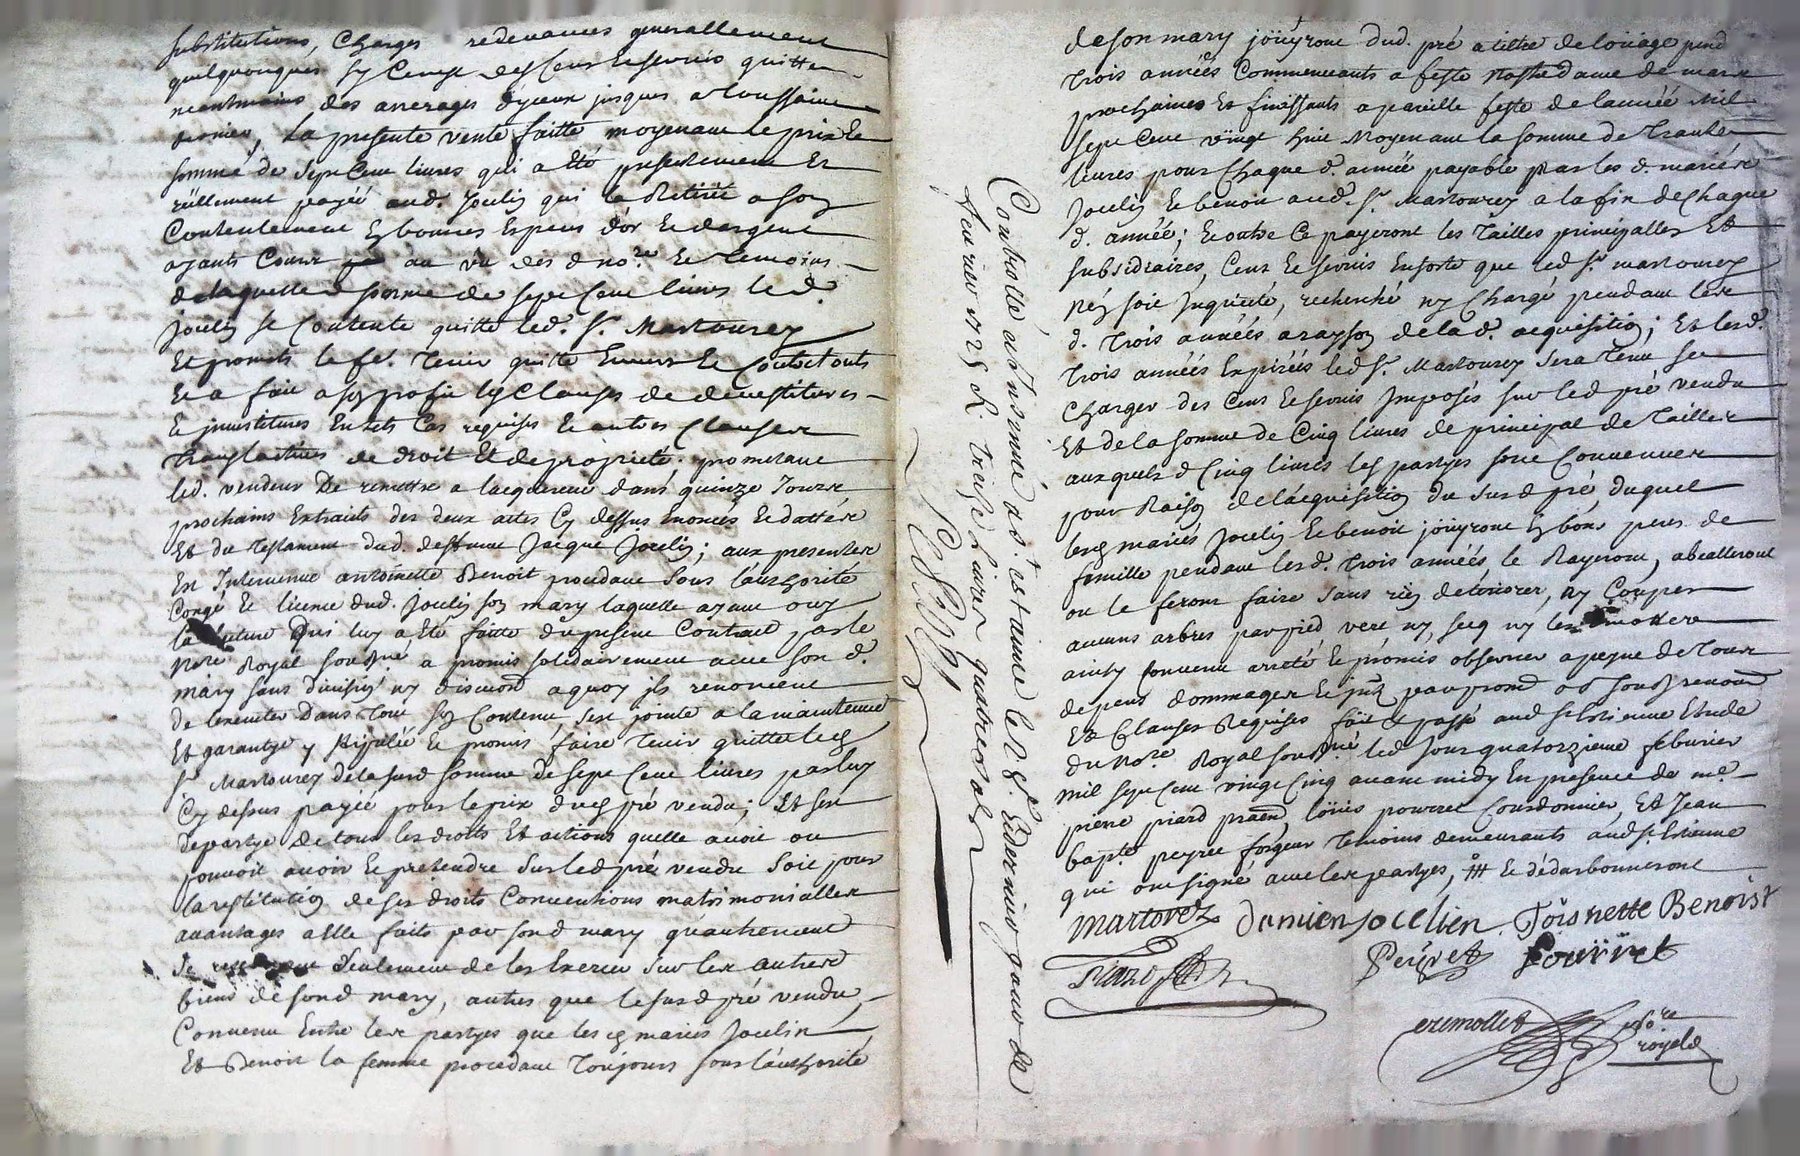 substitutions, Charges redevances generallement
quelquonques sy Ceus des Cens Et servis quitte
neantmoins des arrerages d'yceux jusques a toussaint
dernier, La presente vente faitte moyenant le prix Et
somme de Sept Cent livres qui a Eté presentement Et
réellement payée aud. Joulin qui la Retirée a son
Contentement En bonnes Especes d'or Et dargent
ayants Cours au vu des d nore. Et temoins
de laquelle somme de sept Cent livres led.
Joulin se Contente quitte led. Sr. Martourey
Et promet le fe. tenir quitte Envers Et Contre touts
Et a fait a son profit les Clauses de devestitures
Et investitures En tels Cas requises Et autres Clauses
translatives de droit Et de proprieté; prometant
led. vendeur De remettre a lacquereur dans quinze Jours
prochains Extraits des deux actes Cy dessus Enoncés Et dattés
Et du Testament dud. deffunt Jacque Joulin; aux presentes
Est Intervenue antoinette Benoit procedant sous l'authorité
Congé Et licence dud. Joulin son mary laquelle ayant ouy
la lecture Qui luy a Eté faitte du present Contract par le
Nore Royal sousné a promis solidairement avec son d.
mary sans division ny discution a quoy ils renoncent
de lexecuter Dans tout son Contenu sest jointe a la maintenue
Et garantye y stipulée Et promis faire tenir quitte led
Sr Martourey de la susd somme de sept Cent livres par luy
Cy dessus payée pour le prix dud pré vendu; Et sest
departye De tous les droits Et actions quelle avoit ou
pouvoit avoir Et pretendre sur led pré vendu soit pour
la restitution de ses droits Conventions matrimonialles
avantages a Elle faits par sond mary quautrement
Se seulement de les Exercer sur les autres
biens de sond mary, autres que le susd pré vendu
Convenu Entre les partyes que lesd mariés Joulin
Et Benoit la femme procedant toujours sous l'authorité
Controllé a St Estienne le
fevrier 1725 R treize Livres quatre sols
de son mary joüyront dud. pré a tiltre de loüage pend
trois années Commenceants a feste Nostre dame de mars
prochaines Et finissants a pareille feste de lannée Mil
sept Cent vingt huit Moyenant la somme de trante
livres pour Chaque d. année payable par les d. mariés
Joulin Et benoit aud. Sr. Martourey a la fin de Chaque
d. année; Et outre Ce payeront les Tailles principalles Et
subsidiaires, Cens Et servis Ensorte que led Sr martourey
n'en soit Inquieté, recherché ny Chargé pendant les
d. trois années a rayson de la d. acquisition; Et lesd.
trois années Expirées led Sr. Martourey sera tenu se
Charger des Cens Et servis Imposés sur led pré vendu
Et de la somme de Cinq livres de principal de Tailles
auxquels d Cinq livres les partyes sont Convenues
pour Raison de lacquisition du susd pré, duquel
lesd mariés Joulin Et benoit joüyront En bons peres de
famille pendant lesd. trois années, le
ou le feront faire sans rien deteriorer, ny Couper
aucuns arbres par pied vert ny secq ny les
ainsy Convenu arreté Et promis observer a peyne de tous
depens dommages Et
Et Clauses Requises fait Et passé aud St Estienne Etude
du Nore Royal sousné led Jour quatorzieme febvrier
mil sept cent vingt Cinq avant midy En presence de me
pierre piard Loüis pouvret Courdonnier, Et Jean
bapte peyret forgeur temoins demeurants aud St. Etienne
qui ont signé avec les partyes,
martorey Damien Jocelien. Toisnette Benoist
Peyret Pouvret
Piard
nore
royale